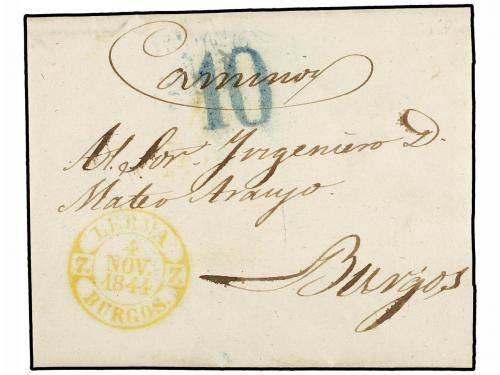 Caminos
10
Al Sor. Yngeniero D.
Mateo Araujo.
Burgos
LERMA
4
NOV.
1844
7. 7.
BURGOS.